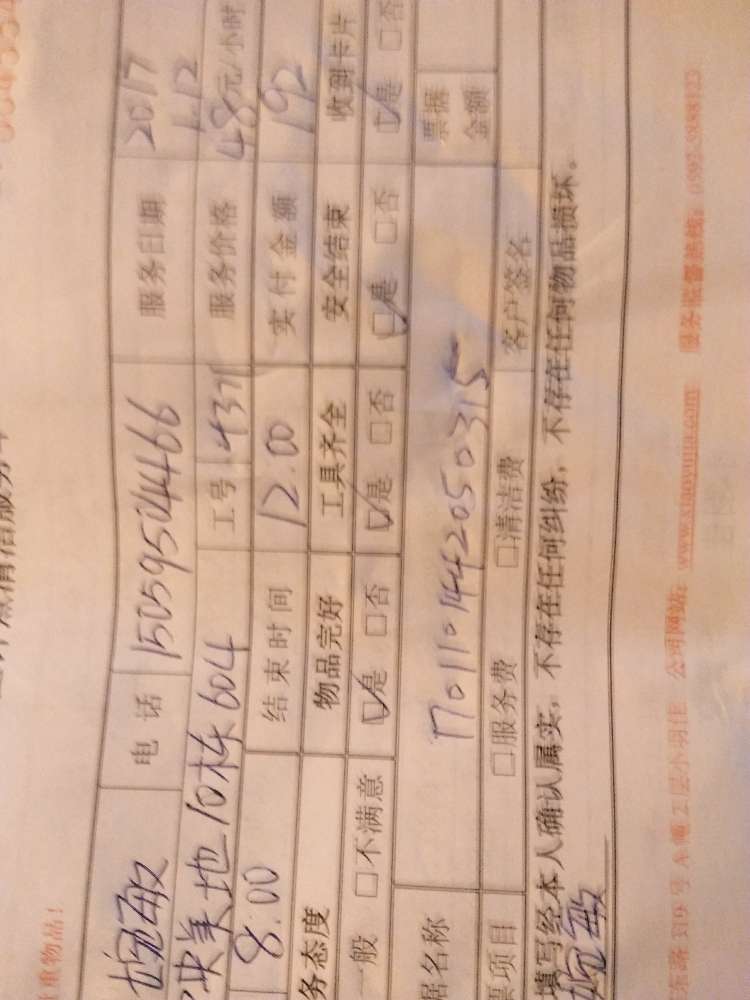 重物品!
婉敏 电话 15059504466 服务日期 2017 1.12
央美地10栋604 工号 4371 服务价格 48元/小时
8:00 结束时间 12:00 实付金额 192
务态度 物品完好 工具齐全 安全结束 收到卡片
一般 □不满意 ☑是 □否 ☑是 □否 ☑是 □否 ☑是 □否
据名称 1701101442050315 票据金额
票项目 □服务费 □清洁费 客户签名
填写经本人确认属实，不存在任何纠纷，不存在任何物品损坏。
婉敏
东路319号A幢2层小羽佳 公司网站：www.xiaoyujia.com 服务监督热线：